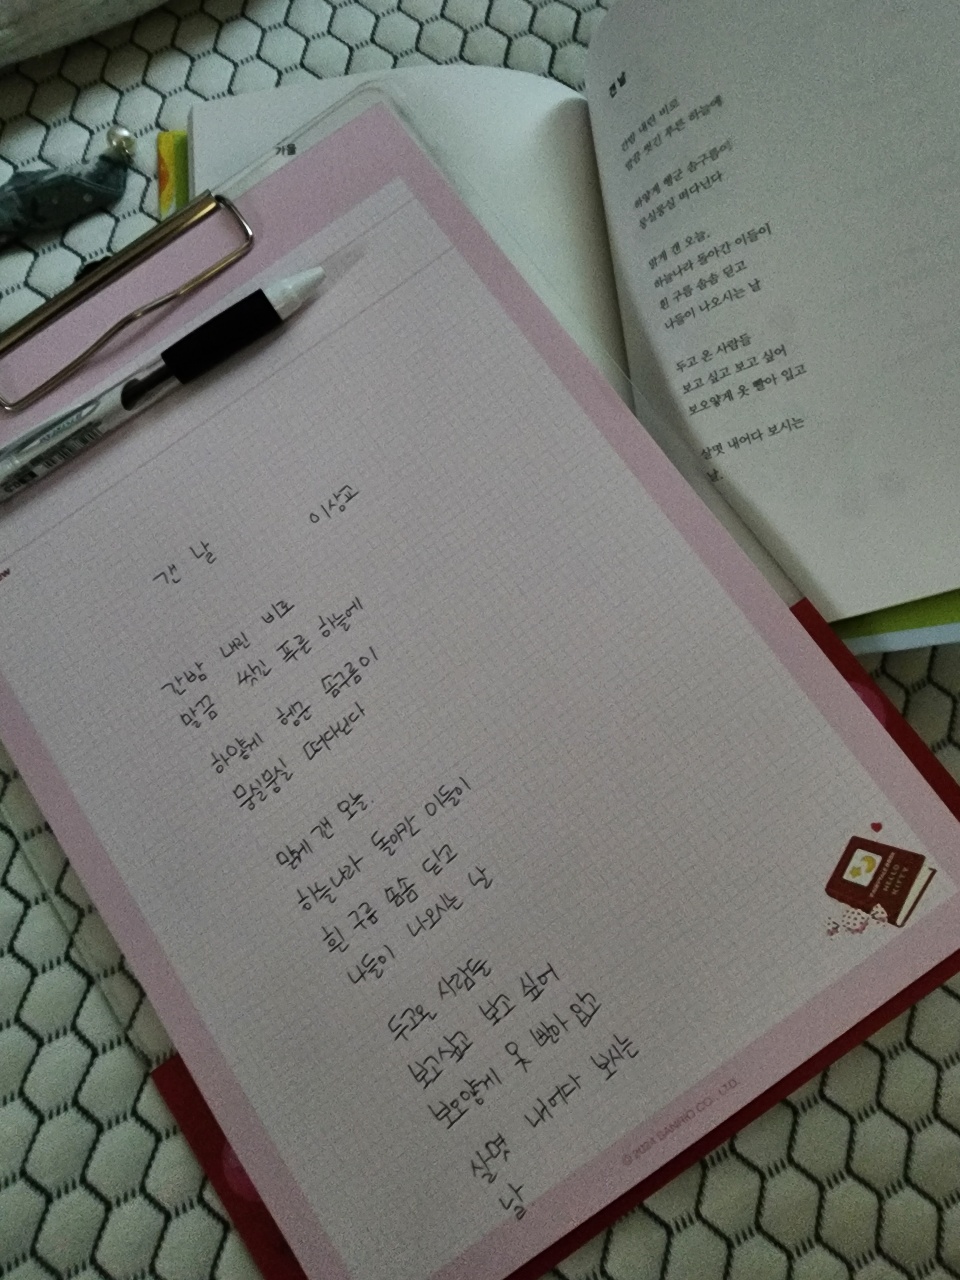 가을
갠 날
간밤 내린 비로
말끔 씻긴 푸른 하늘에
하얗게 헹군 솜구름이
뭉실뭉실 떠다닌다
맑게 갠 오늘.
하늘나라 돌아간 이들이
흰 구름 솜솜 딛고
나들이 나오시는 날
두고 온 사람들
보고 싶고 보고 싶어
보오얗게 옷 빨아 입고
살몃 내어다 보시는
날.
갠 날 이상교
간밤 내린 비로
말끔 씻긴 푸른 하늘에
하얗게 헹군 솜구름이
뭉실뭉실 떠다닌다
맑게 갠 오늘.
하늘나라 돌아간 이들이
흰 구름 솜솜 딛고
나들이 나오시는 날
두고온 사람들
보고싶고 보고 싶어
보오얗게 옷 빨아 입고
살몃 내어다 보시는
날.
HELLO
KITTY
© 2024 SANRIO CO., LTD.